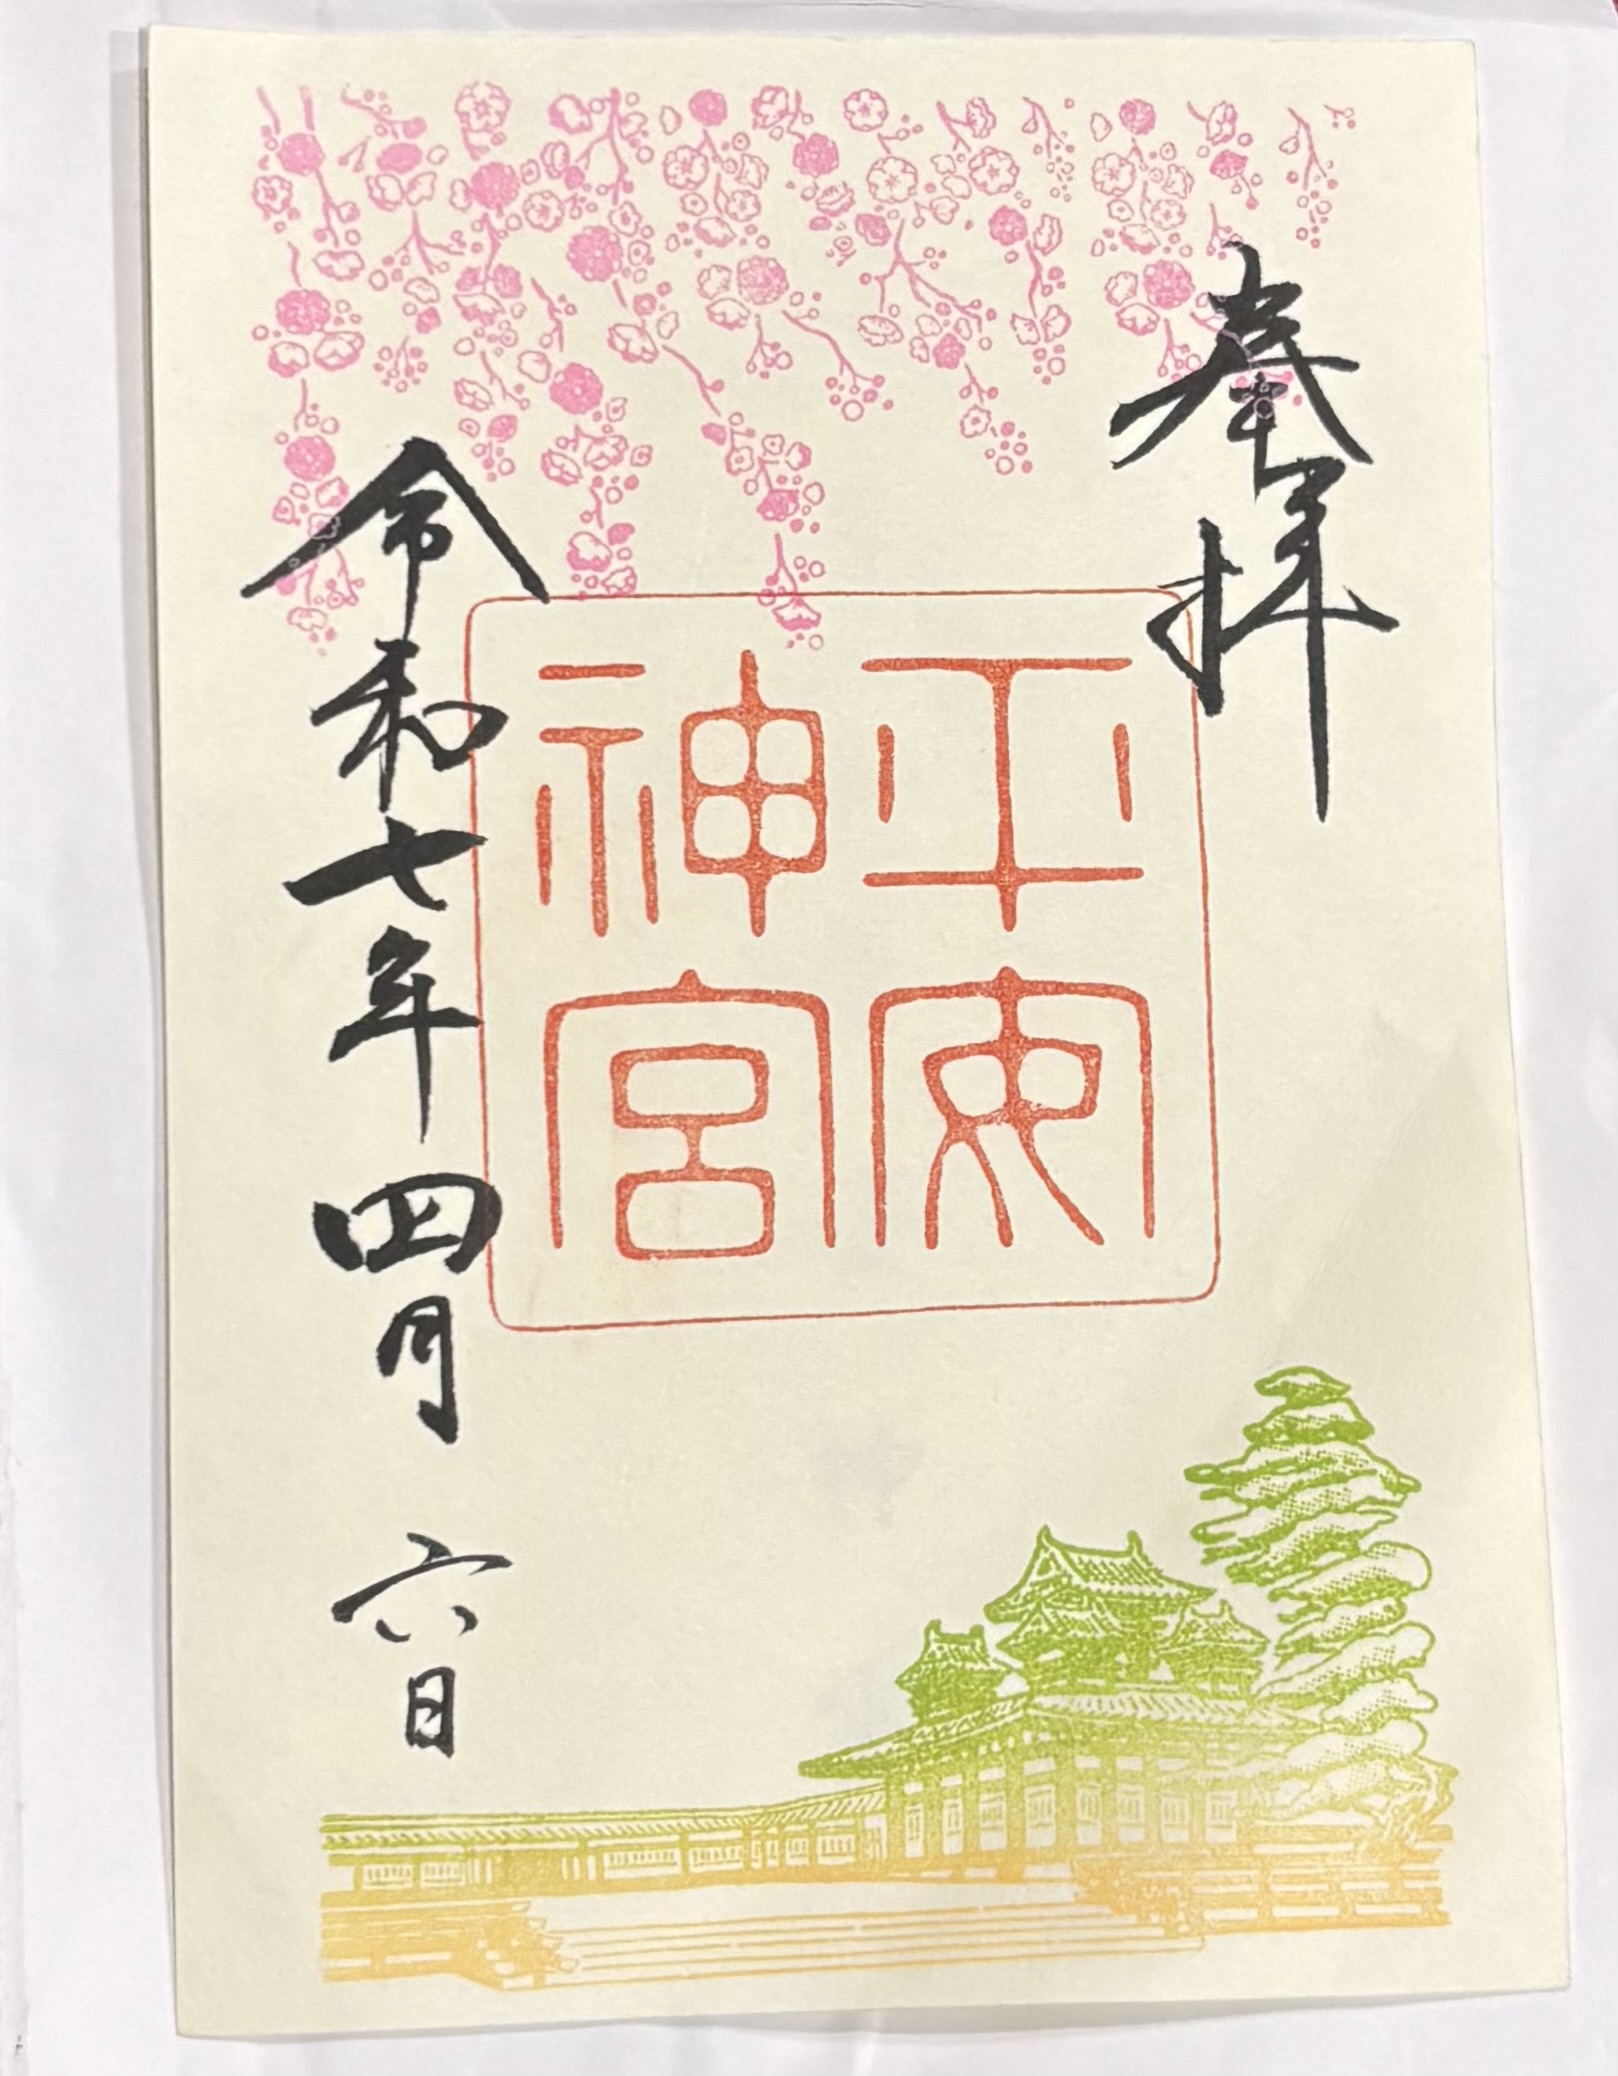 奉拝
平安
神宮
令和七年四月六日